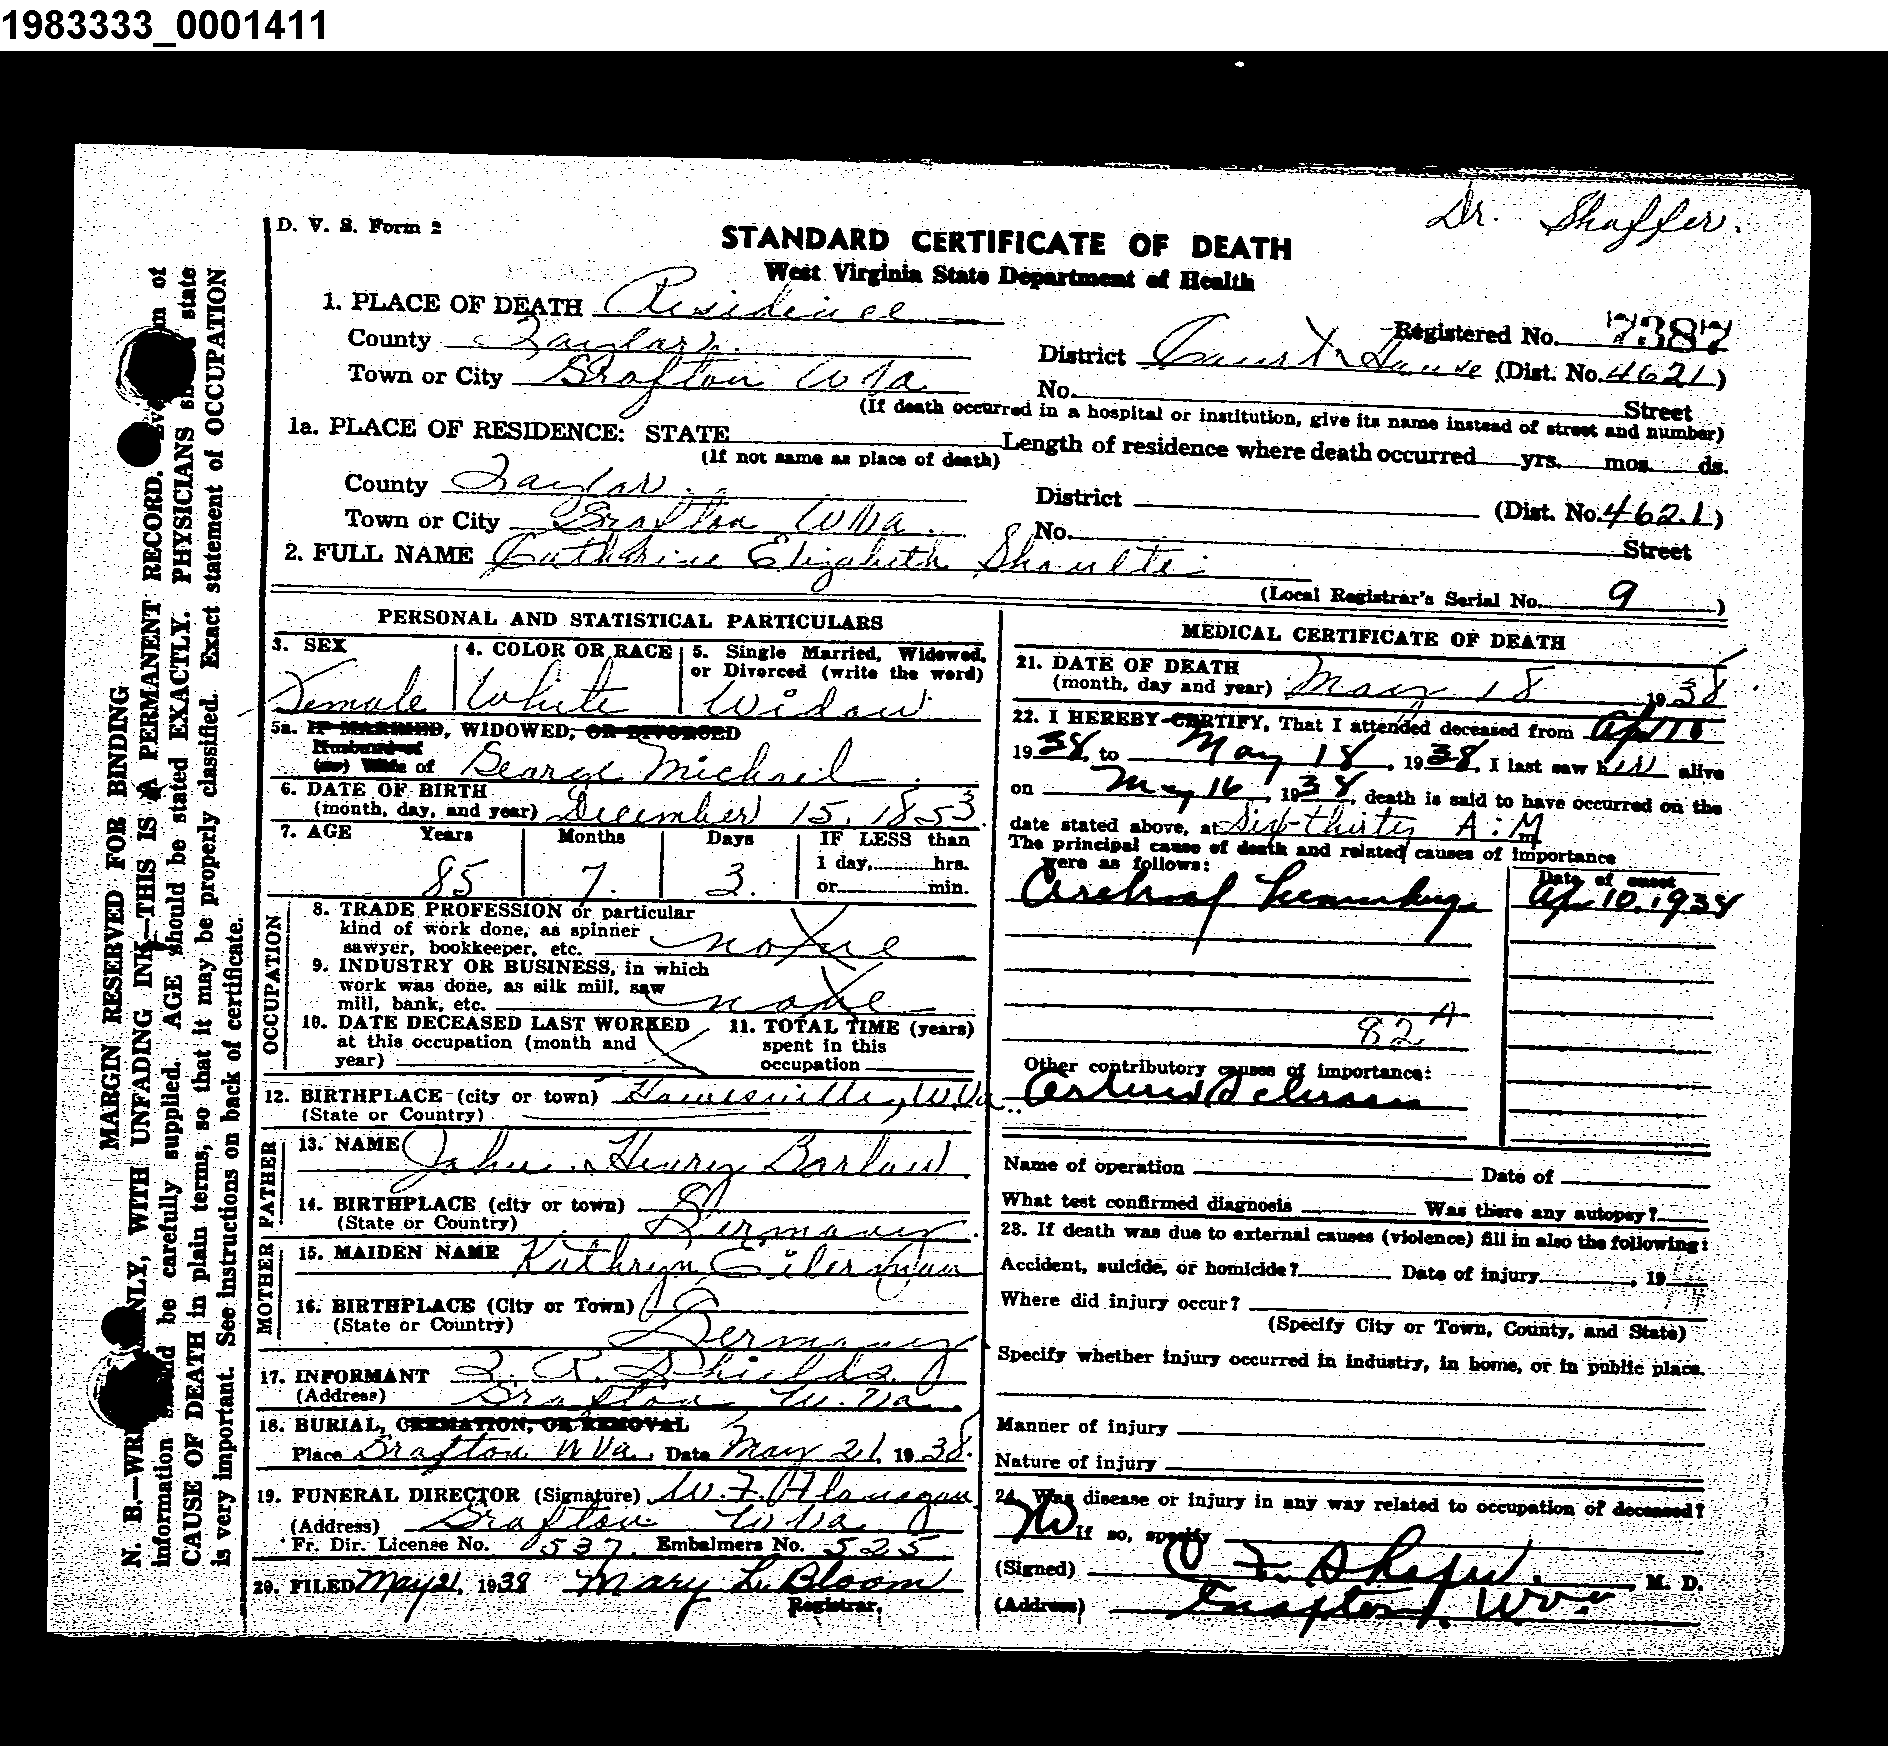 1983333_0001411
Dr. Shaffer.
D. V. S. Form 2
STANDARD CERTIFICATE OF DEATH
West Virginia State Department of Health
1. PLACE OF DEATH Residence
Registered No. 7387
County Taylor.
District Court House (Dist. No. 4621)
Town or City Grafton W Va
No. Street
(If death occurred in a hospital or institution, give its name instead of street and number)
1a. PLACE OF RESIDENCE: STATE
Length of residence where death occurred yrs. mos. ds.
(If not same as place of death)
County Taylor.
District (Dist. No. 4621)
Town or City Grafton W Va.
No. Street
2. FULL NAME Catherine Elizabeth
(Local Registrar's Serial No. 9 )
PERSONAL AND STATISTICAL PARTICULARS
3. SEX Female
4. COLOR OR RACE White
5. Single Married, Widowed, or Divorced (write the word) Widow
5a. IF MARRIED, WIDOWED, OR DIVORCED
Husband of
(or) Wife of George Michael
6. DATE OF BIRTH
(month, day, and year) December 15, 1853
7. AGE Years Months Days IF LESS than
1 day, hrs.
or min.
85 7. 3.
OCCUPATION
8. TRADE PROFESSION or particular
kind of work done, as spinner
sawyer, bookkeeper, etc. none
9. INDUSTRY OR BUSINESS, in which
work was done, as silk mill, saw
mill, bank, etc. none
10. DATE DECEASED LAST WORKED
at this occupation (month and
year)
11. TOTAL TIME (years)
spent in this
occupation
12. BIRTHPLACE (city or town) W.Va.
(State or Country)
FATHER
13. NAME John Henry Barlow
14. BIRTHPLACE (city or town)
(State or Country) Germany.
MOTHER
15. MAIDEN NAME Kathryn
16. BIRTHPLACE (City or Town)
(State or Country) Germany
17. INFORMANT R. Shields
(Address) Grafton W. Va.
18. BURIAL, CREMATION, OR REMOVAL
Place Grafton W Va. Date May 21, 1938.
19. FUNERAL DIRECTOR (Signature) W. F.
(Address) Grafton W Va
Fr. Dir. License No. 537. Embalmers No. 525
20. FILED May 21, 1938 Mary L. Bloom
Registrar.
MEDICAL CERTIFICATE OF DEATH
21. DATE OF DEATH
(month, day and year) May 18 1938
22. I HEREBY CERTIFY, That I attended deceased from
1938, to May 18, 1938, I last saw her alive
on May 16, 1938, death is said to have occurred on the
date stated above, at Six-thirty A:M
The principal cause of death and related causes of importance
were as follows:
Date of onset
Cerebral
Ap 10, 1938
82 A
Other contributory causes of importance:
Name of operation Date of
What test confirmed diagnosis Was there any autopsy?
23. If death was due to external causes (violence) fill in also the following:
Accident, suicide, or homicide? Date of injury , 19
Where did injury occur?
(Specify City or Town, County, and State)
Specify whether injury occurred in industry, in home, or in public place.
Manner of injury
Nature of injury
24. Was disease or injury in any way related to occupation of deceased?
No If so, specify
(Signed) M. D.
(Address) Grafton, W Va
MARGIN RESERVED FOR BINDING